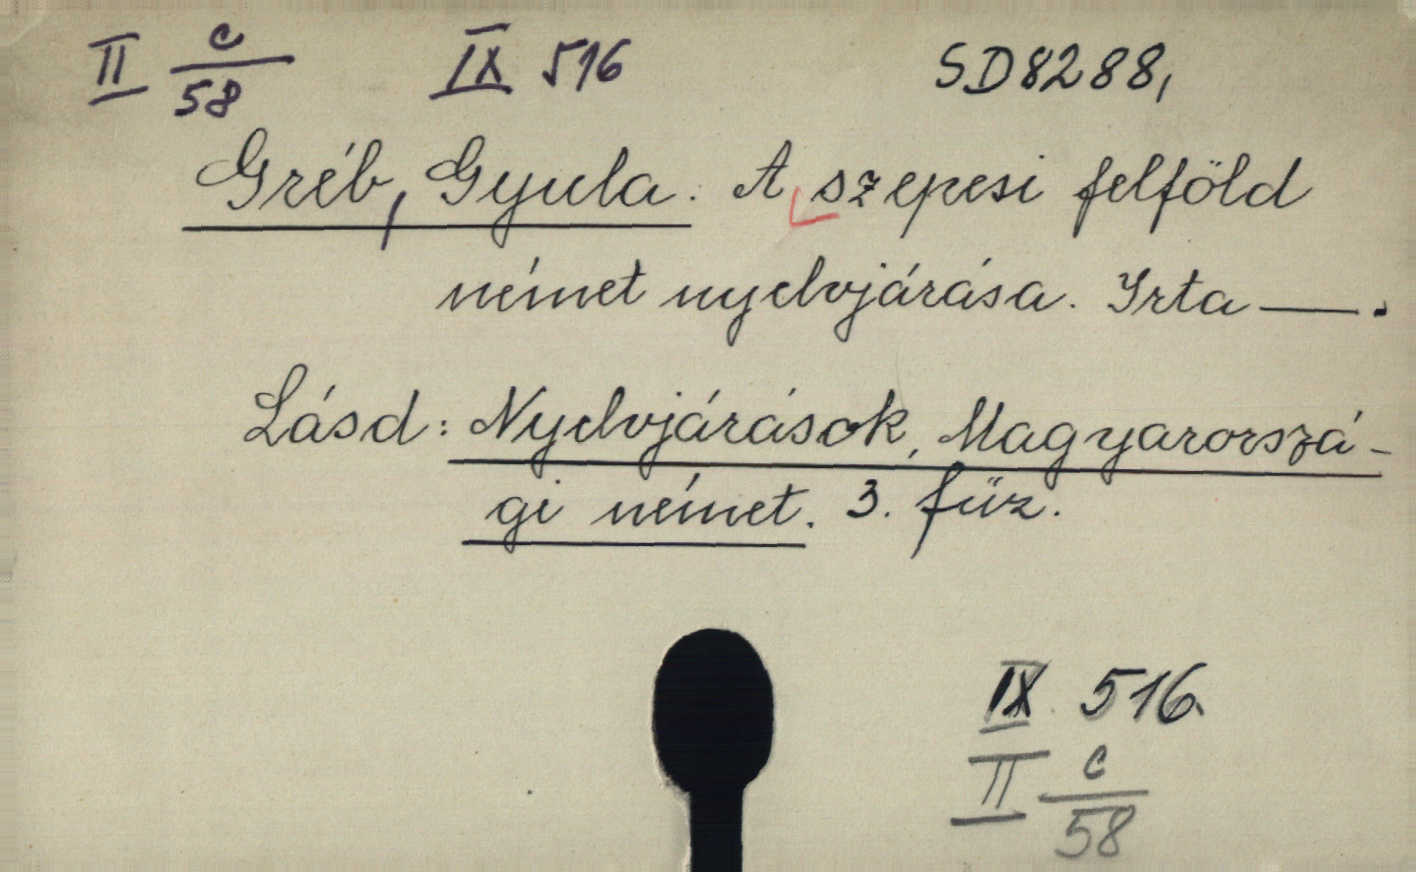 II c/58 IX 516 SD8288,
Gréb, Gyula. A szepesi felföld
német nyelvjárása. Irta —.
Lásd: Nyelvjárások, Magyarorszá-
gi német. 3. füz.
IX 516.
II c/58